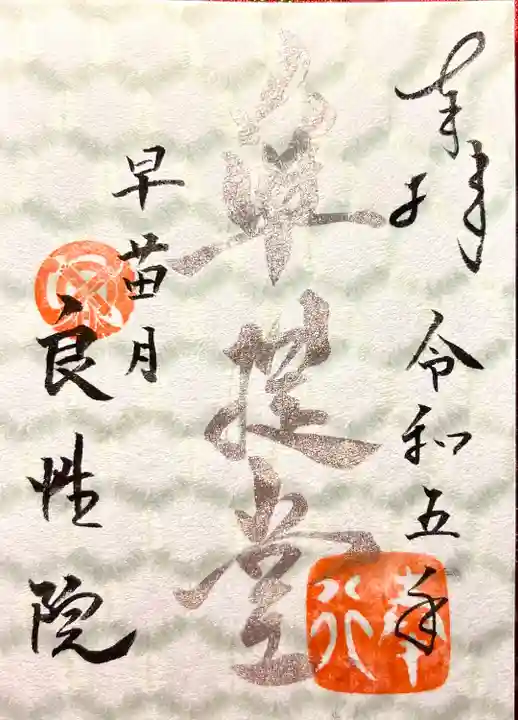 奉拝 令和五年
準提堂
早苗月
良性院